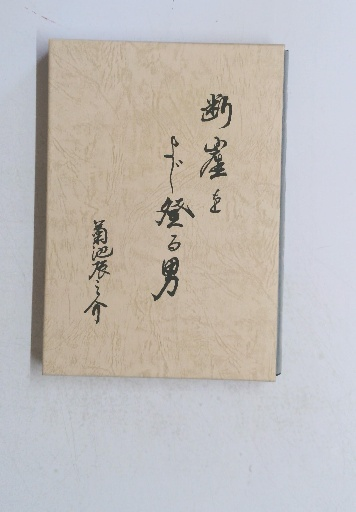 断崖を
よぢ登る男
菊池辰之介